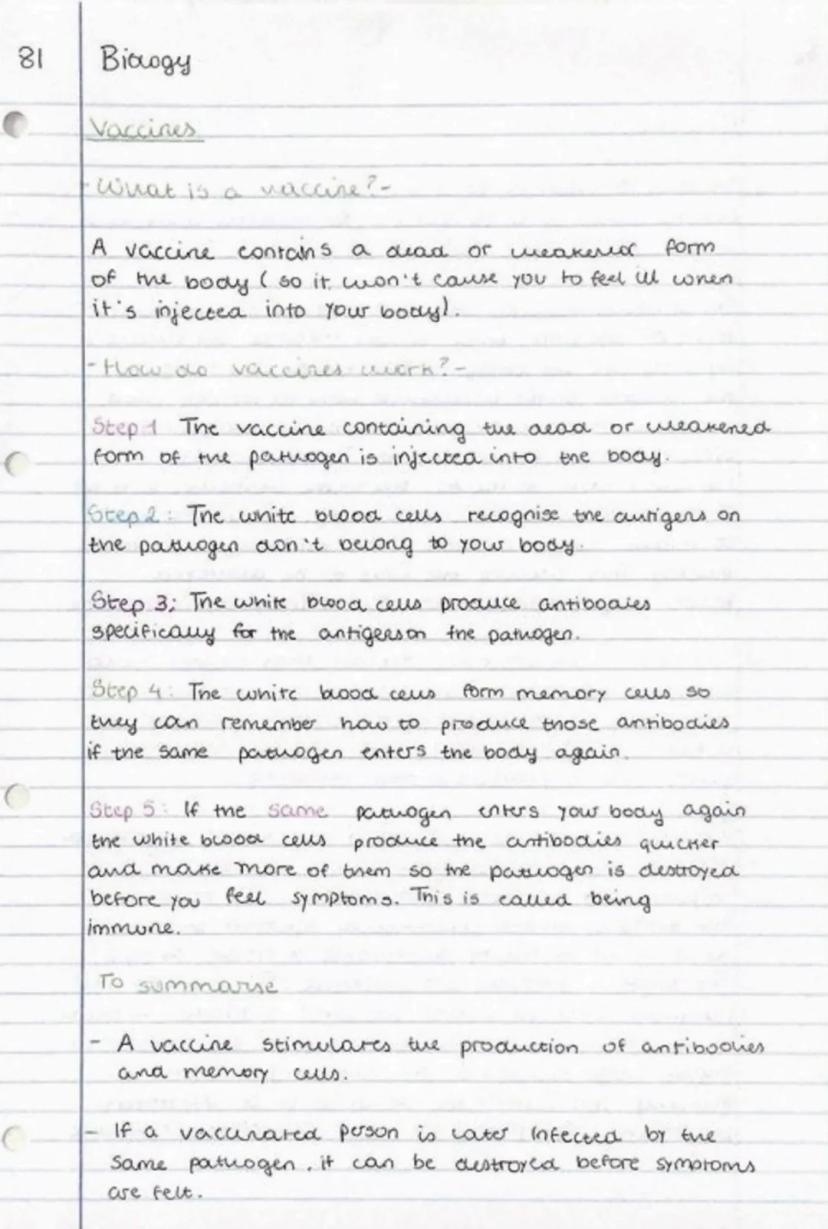 81 Biology
Vaccines
-What is a vaccine?-
A vaccine contains a dead or weakened form
of the body (so it won't cause you to feel ill when
it's injected into your body).
-How do vaccines work?-
Step 1 The vaccine containing the dead or weakened
form of the pathogen is injected into the body.
Step 2: The white blood cells recognise the antigens on
the pathogen don't belong to your body.
Step 3; The white blood cells produce antibodies
specifically for the antigens on the pathogen.
Step 4: The white blood cells form memory cells so
they can remember how to produce those antibodies
if the same pathogen enters the body again.
Step 5: If the same pathogen enters your body again
the white blood cells produce the antibodies quicker
and make more of them so the pathogen is destroyed
before you feel symptoms. This is called being
immune.
To summarise
- A vaccine stimulates the production of antibodies
and memory cells.
- If a vaccinated person is later infected by the
same pathogen, it can be destroyed before symptoms
are felt.